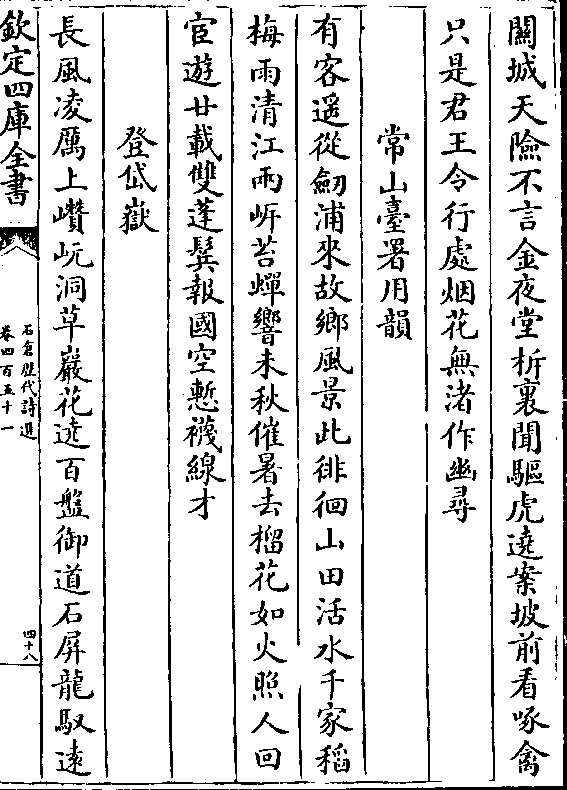 關城天險不言金夜堂柝裏聞驅虎遶案坡前看啄禽
只是君王令行處烟花無渚作幽尋
常山臺署用韻
有客遥從劒浦來故鄉風景此徘徊山田活水千家稻
梅雨清江兩岍苔蟬響未秋催暑去榴花如火照人回
宦遊廿載雙蓬鬂報國空慙襪線才
登岱嶽
長風凌厲上巑岏洞草巖花遶百盤御道石屏龍馭遠
欽定四庫全書
石倉歴代詩選
卷四百五十一
四十八